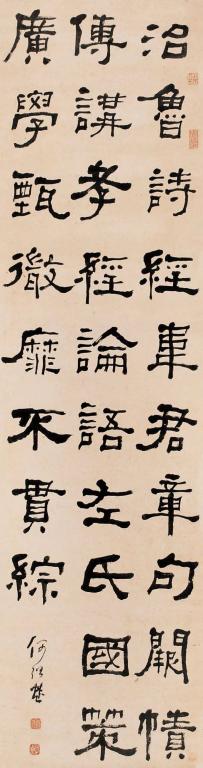 治魯詩經韋君章句闕幘
傳講孝經論語左氏國策
廣學甄微靡不貫綜
何紹基